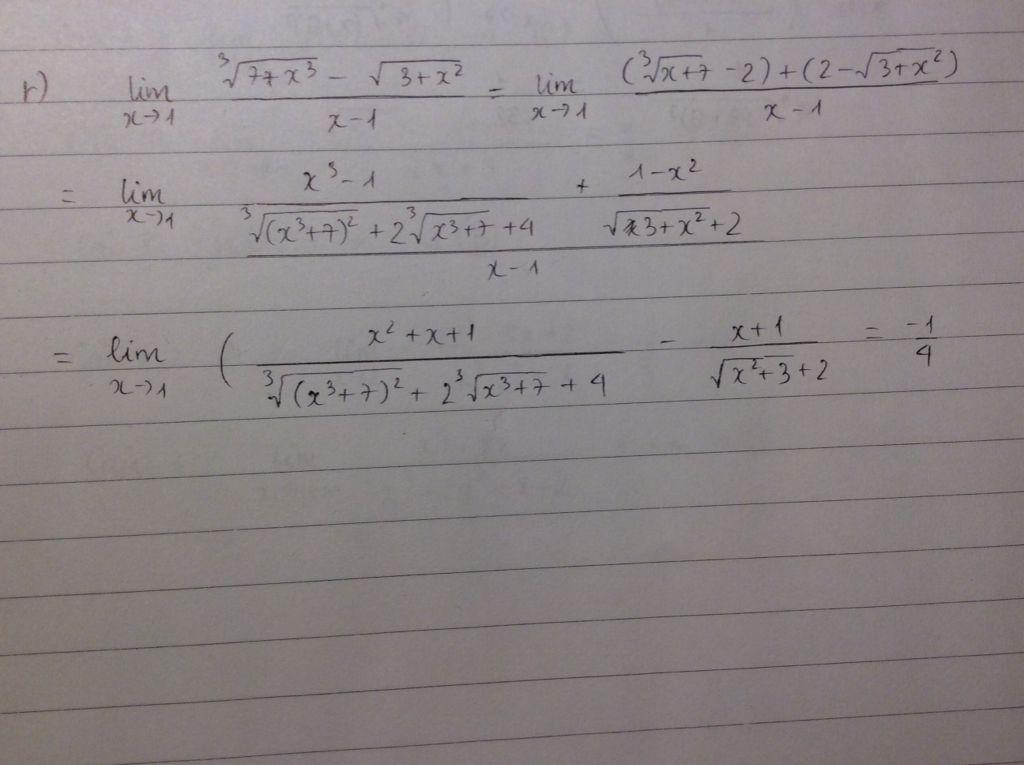 r) lim x→1 (∛(77x³) − √(3+x²))/(x−1) = lim x→1 ((∛(x+7) − 2) + (2 − √(3+x²)))/(x−1)
= lim x→1 ((x³−1)/(∛((x³+7)²) + 2∛(x³+7) + 4) + (1−x²)/(√(3+x²) + 2))/(x−1)
= lim x→1 ( (x²+x+1)/(∛((x³+7)²) + 2∛(x³+7) + 4) − (x+1)/(√(x²+3) + 2) = −1/4